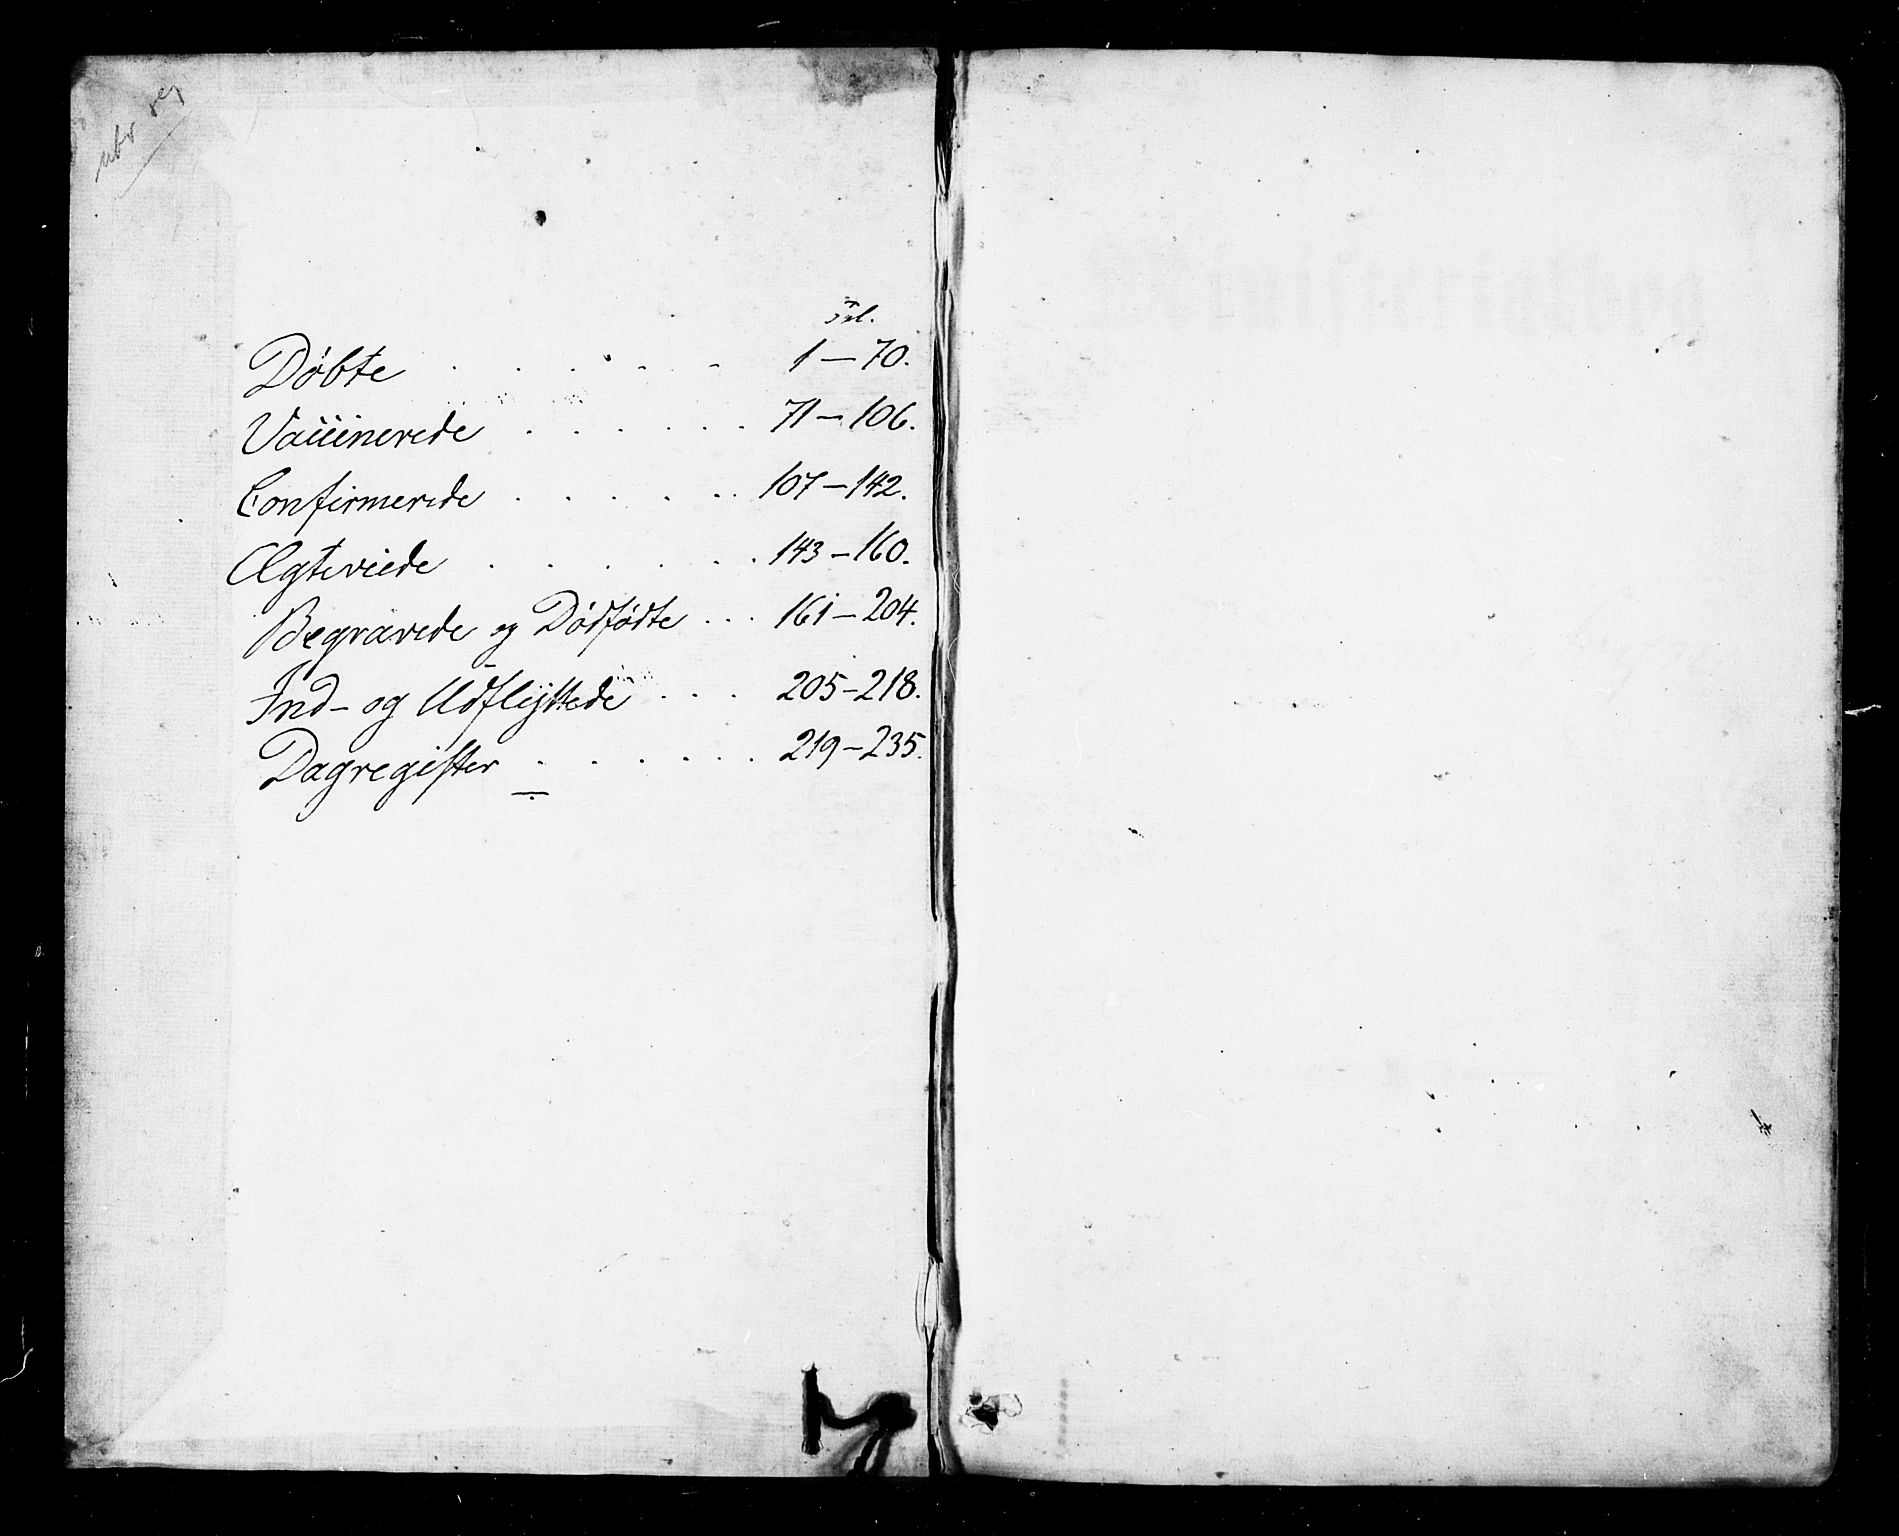 Fol.
Døbte . . . . . . 1 — 70.
Vaccinerede . . . . . . 71 — 106.
Confirmerede . . . . . . 107 — 142.
Ægteviede . . . . . . 143 — 160.
Begravede og Dødfødte . . . 161 — 204.
Ind- og Udflyttede . . . 205 — 218.
Dagregister . . . . . . 219 — 235.